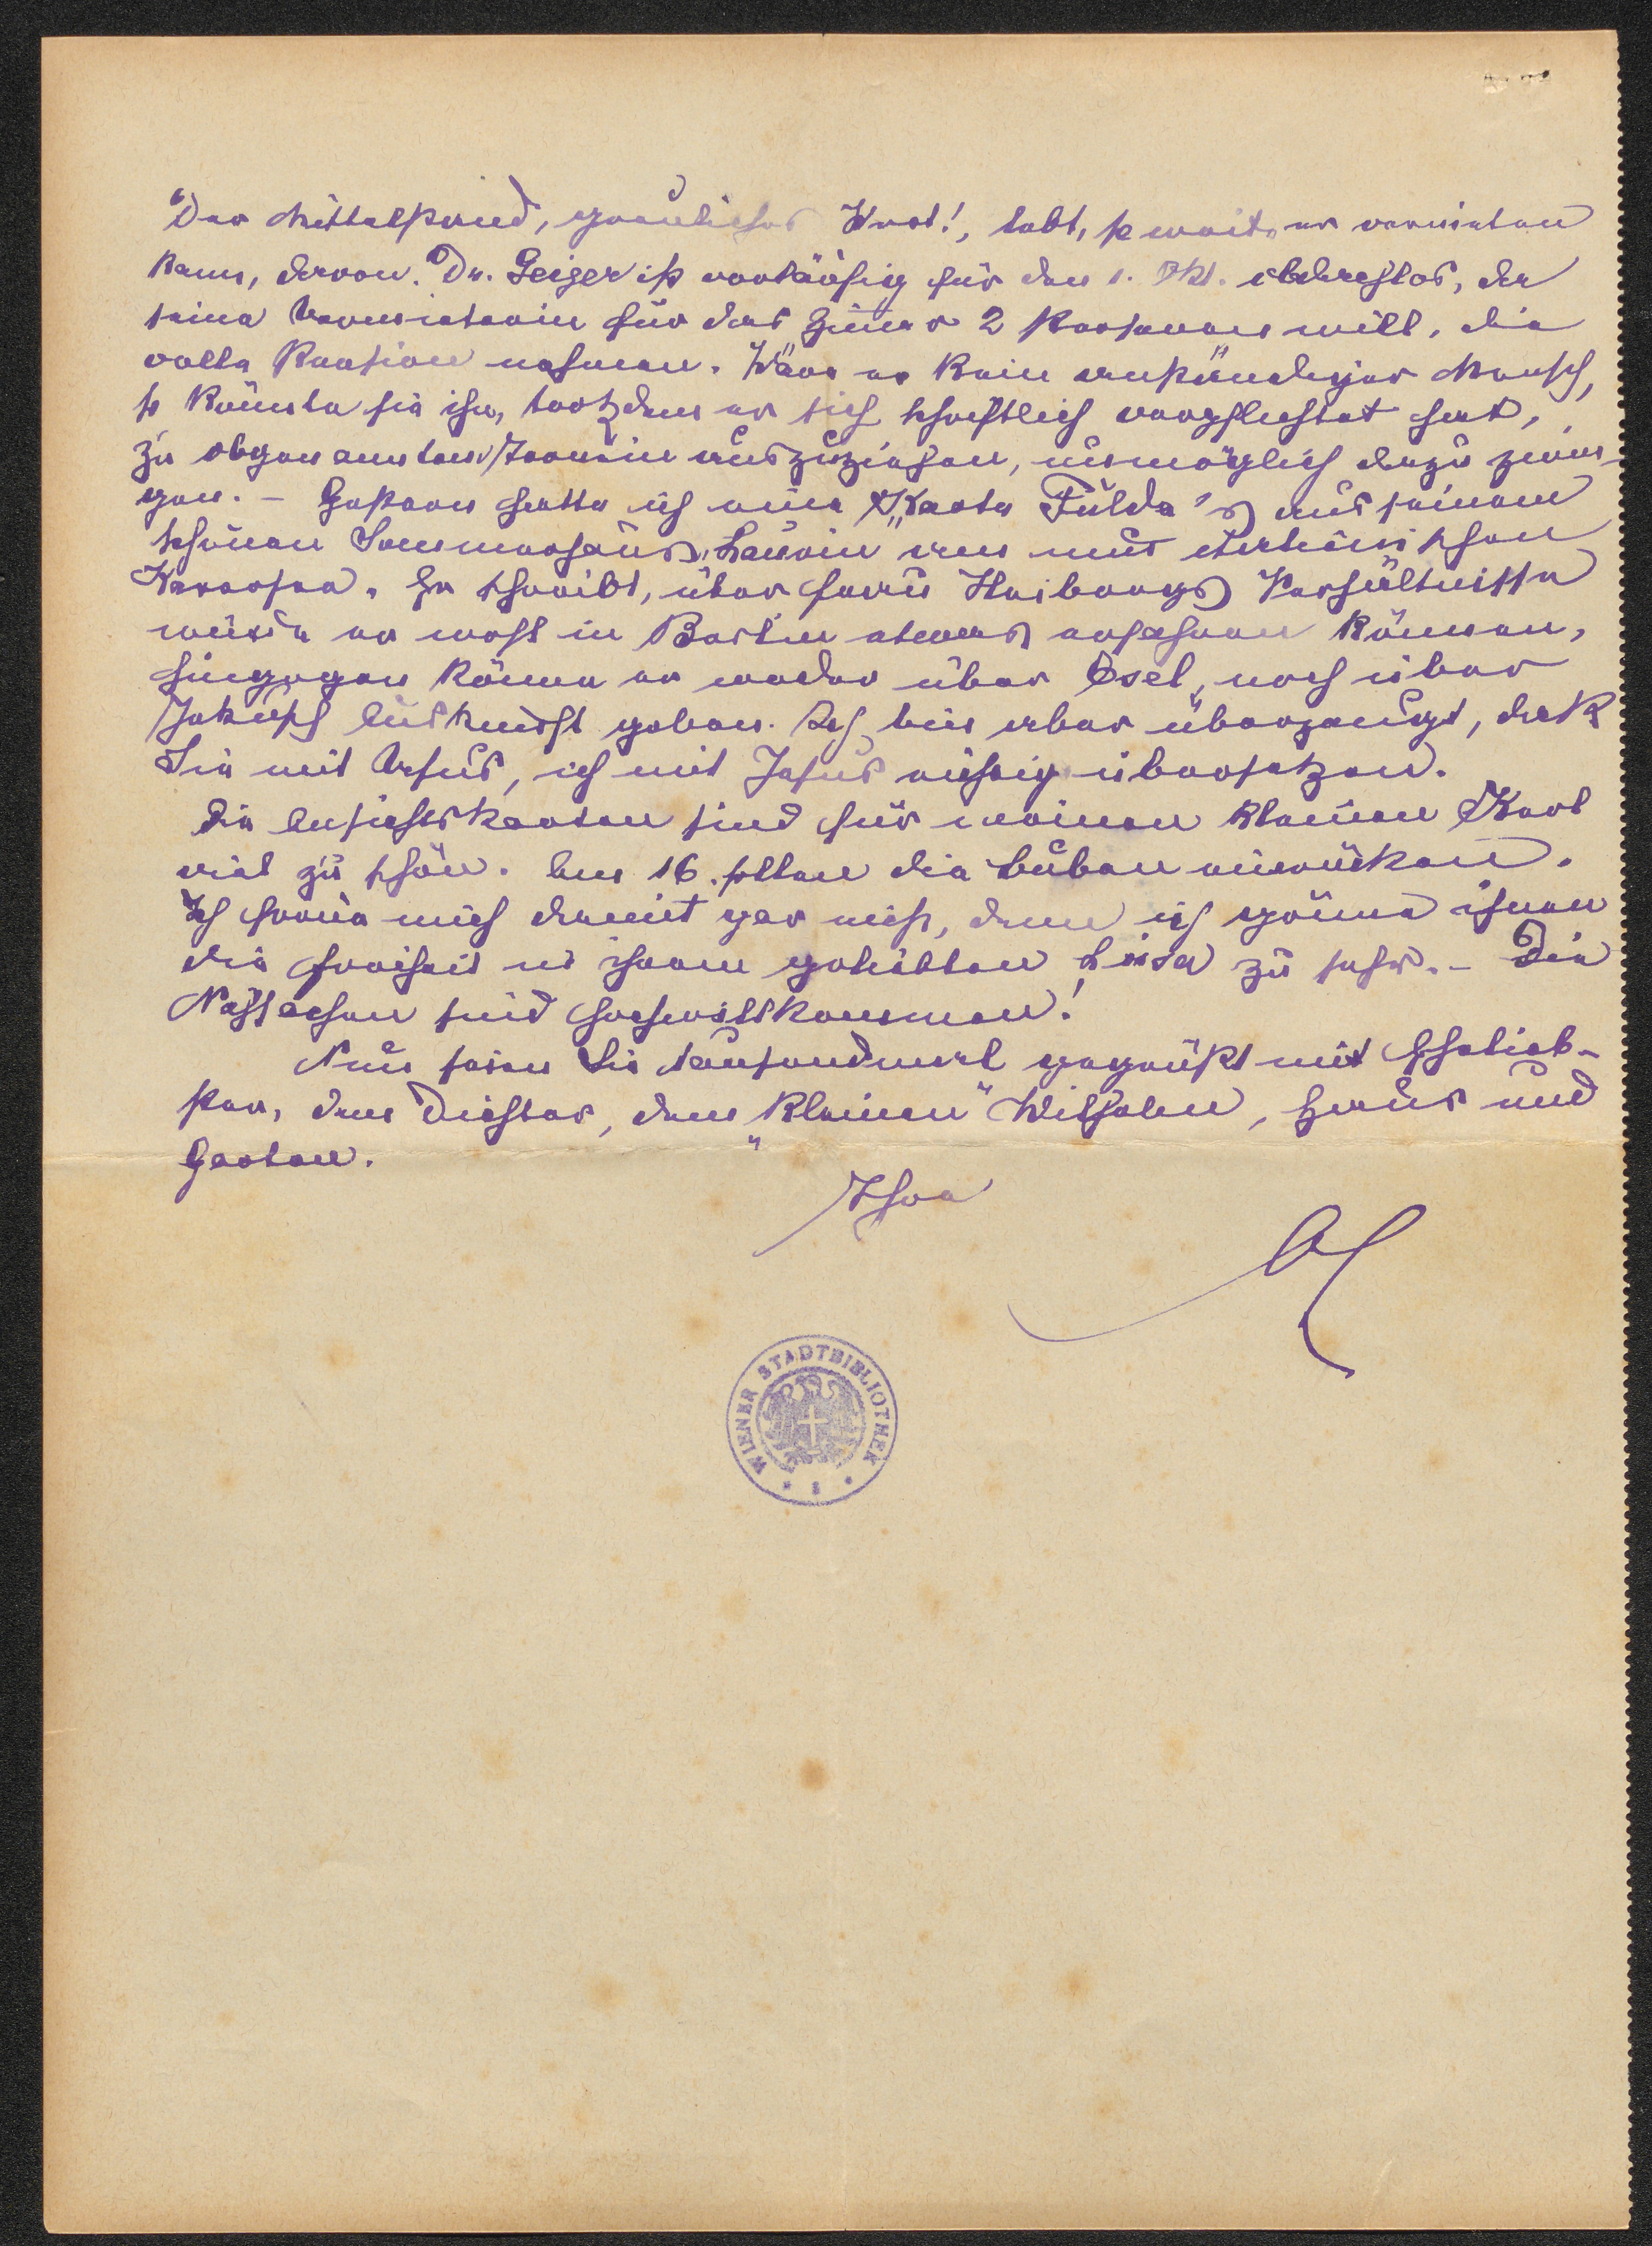 Der Mittelstand, greuliches Wort!, lebt, so weit er vermieten
kann, davon. Dr. Geiger ist vorläufig für den 1. Okt. obdachlos, da
seine Vermieterin für das Zimmer 2 Personen will, die
volle Pension nehmen. Wäre er kein anständiger Mensch,
so könnte sie ihn, trotzdem er sich schriftlich verpflichtet hat,
zu obgenanntem Termin auszuziehen, unmöglich dazu zwin-
gen. – Gestern hatte ich eine Karte Fulda's aus seinem
schönen Sommerhaus, Laurin um mit
Karersee. Er schreibt, über Frau Verhältnisse
würde er wohl in Berlin etwas erfahren können,
hingegen könne er weder über Esel, noch über
Auskunft geben. Ich bin aber überzeugt, daß
Sie mit Ursus, ich mit Jesus richtig übersetzen.
Die Ansichtskarten sind für meinen kleinen Karl
viel zu schön. Am 16. sollen die Buben einrücken.
Ich freue mich damit gar nicht, denn ich gönne ihnen
die Freiheit in ihrem geliebten Linsa zu sehr. – Die
Nachsachen sind hochwillkommen!
Nun seien Sie tausendmal gegrüßt mit Ehelieb-
sten, dem Dichter, dem "kleinen" Wilhelm, Haus und
Garten.
Ihre
WIENER STADTBIBLIOTHEK